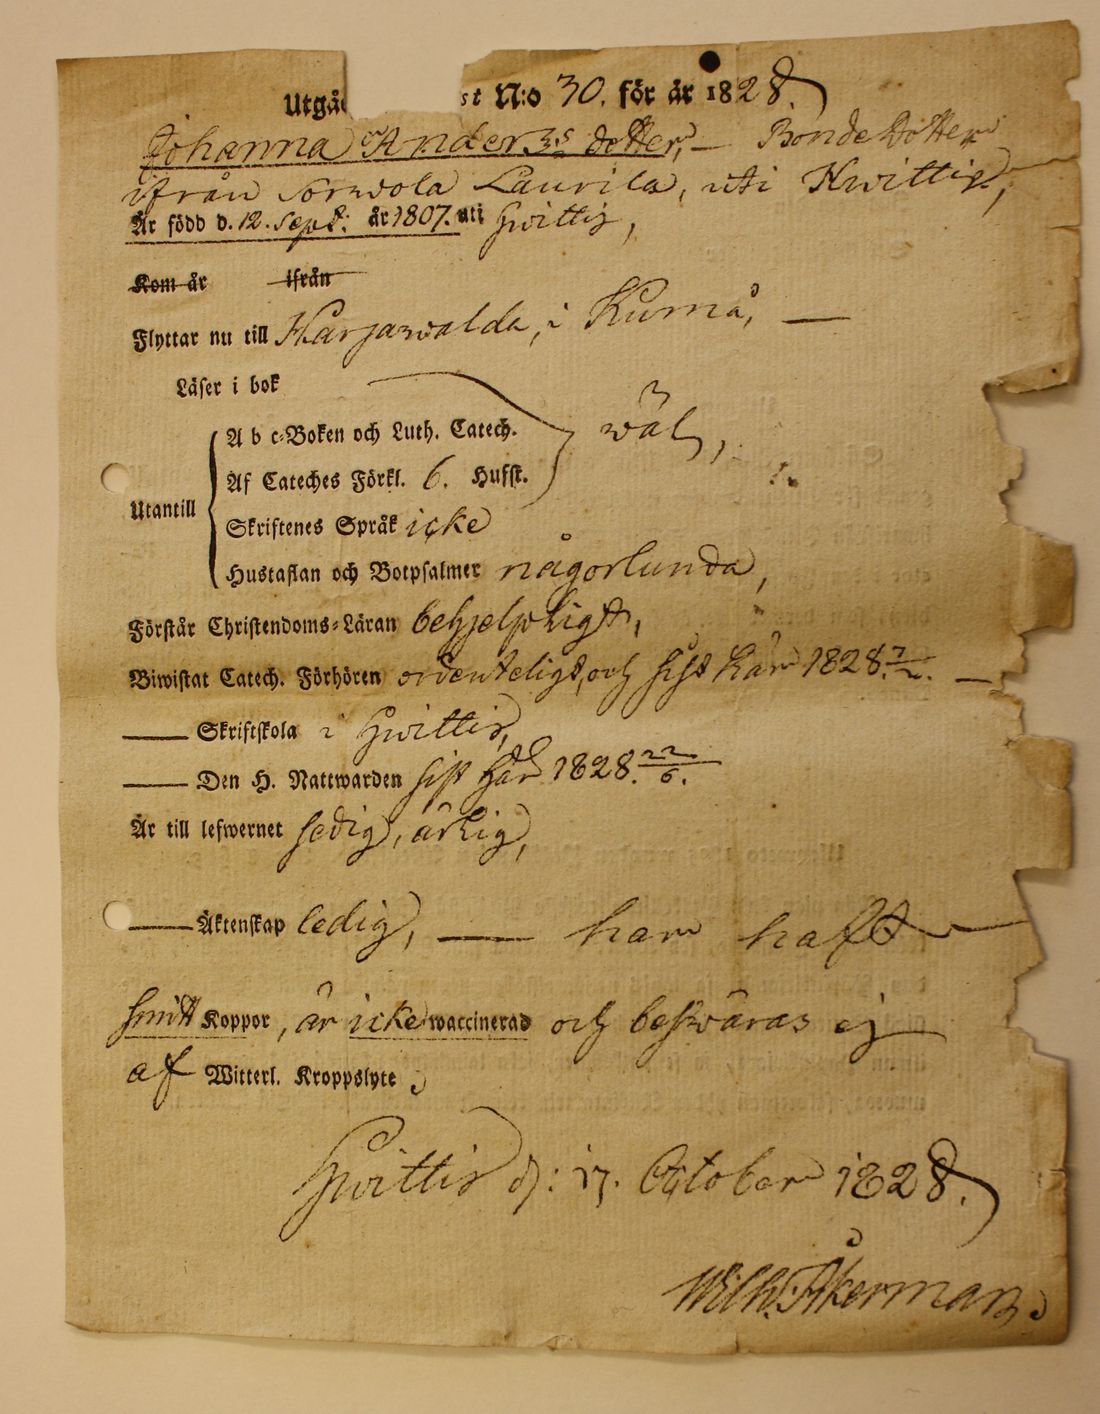 Utgå st N:o 30. för år 1828.
Johanna Anders dotter, – Bonde Dotter
ifrån Sorwola Laurila, uti Hwittis,
Är född d. 12. Sept: år 1807. uti Hwittis,
Kom år ifrån
Flyttar nu till Harjawalda, i Kumå, —
Läser i bok
A b c-Boken och Luth. Catech.
wäl,
Af Cateches Förkl. 6. Hufst.
Utantill
Skriftenes Språk icke
Hustaflan och Botpsalmer någorlunda,
Förstår Christendoms-Läran behjelpligt,
Biwistat Catech. Förhören ordenteligt, och sist här 1828. —
— Skriftskola i Hwittis,
— Den H. Nattwarden sist här 1828. 22/6.
Är till lefwernet sedig, ärlig,
— Äktenskap ledig, — har haft —
smitt Koppor, är icke waccinerad och beswäras ej
af Witterl. Kroppslyte.
Hwittis d: 17. October 1828.
Wilh. Åkerman.